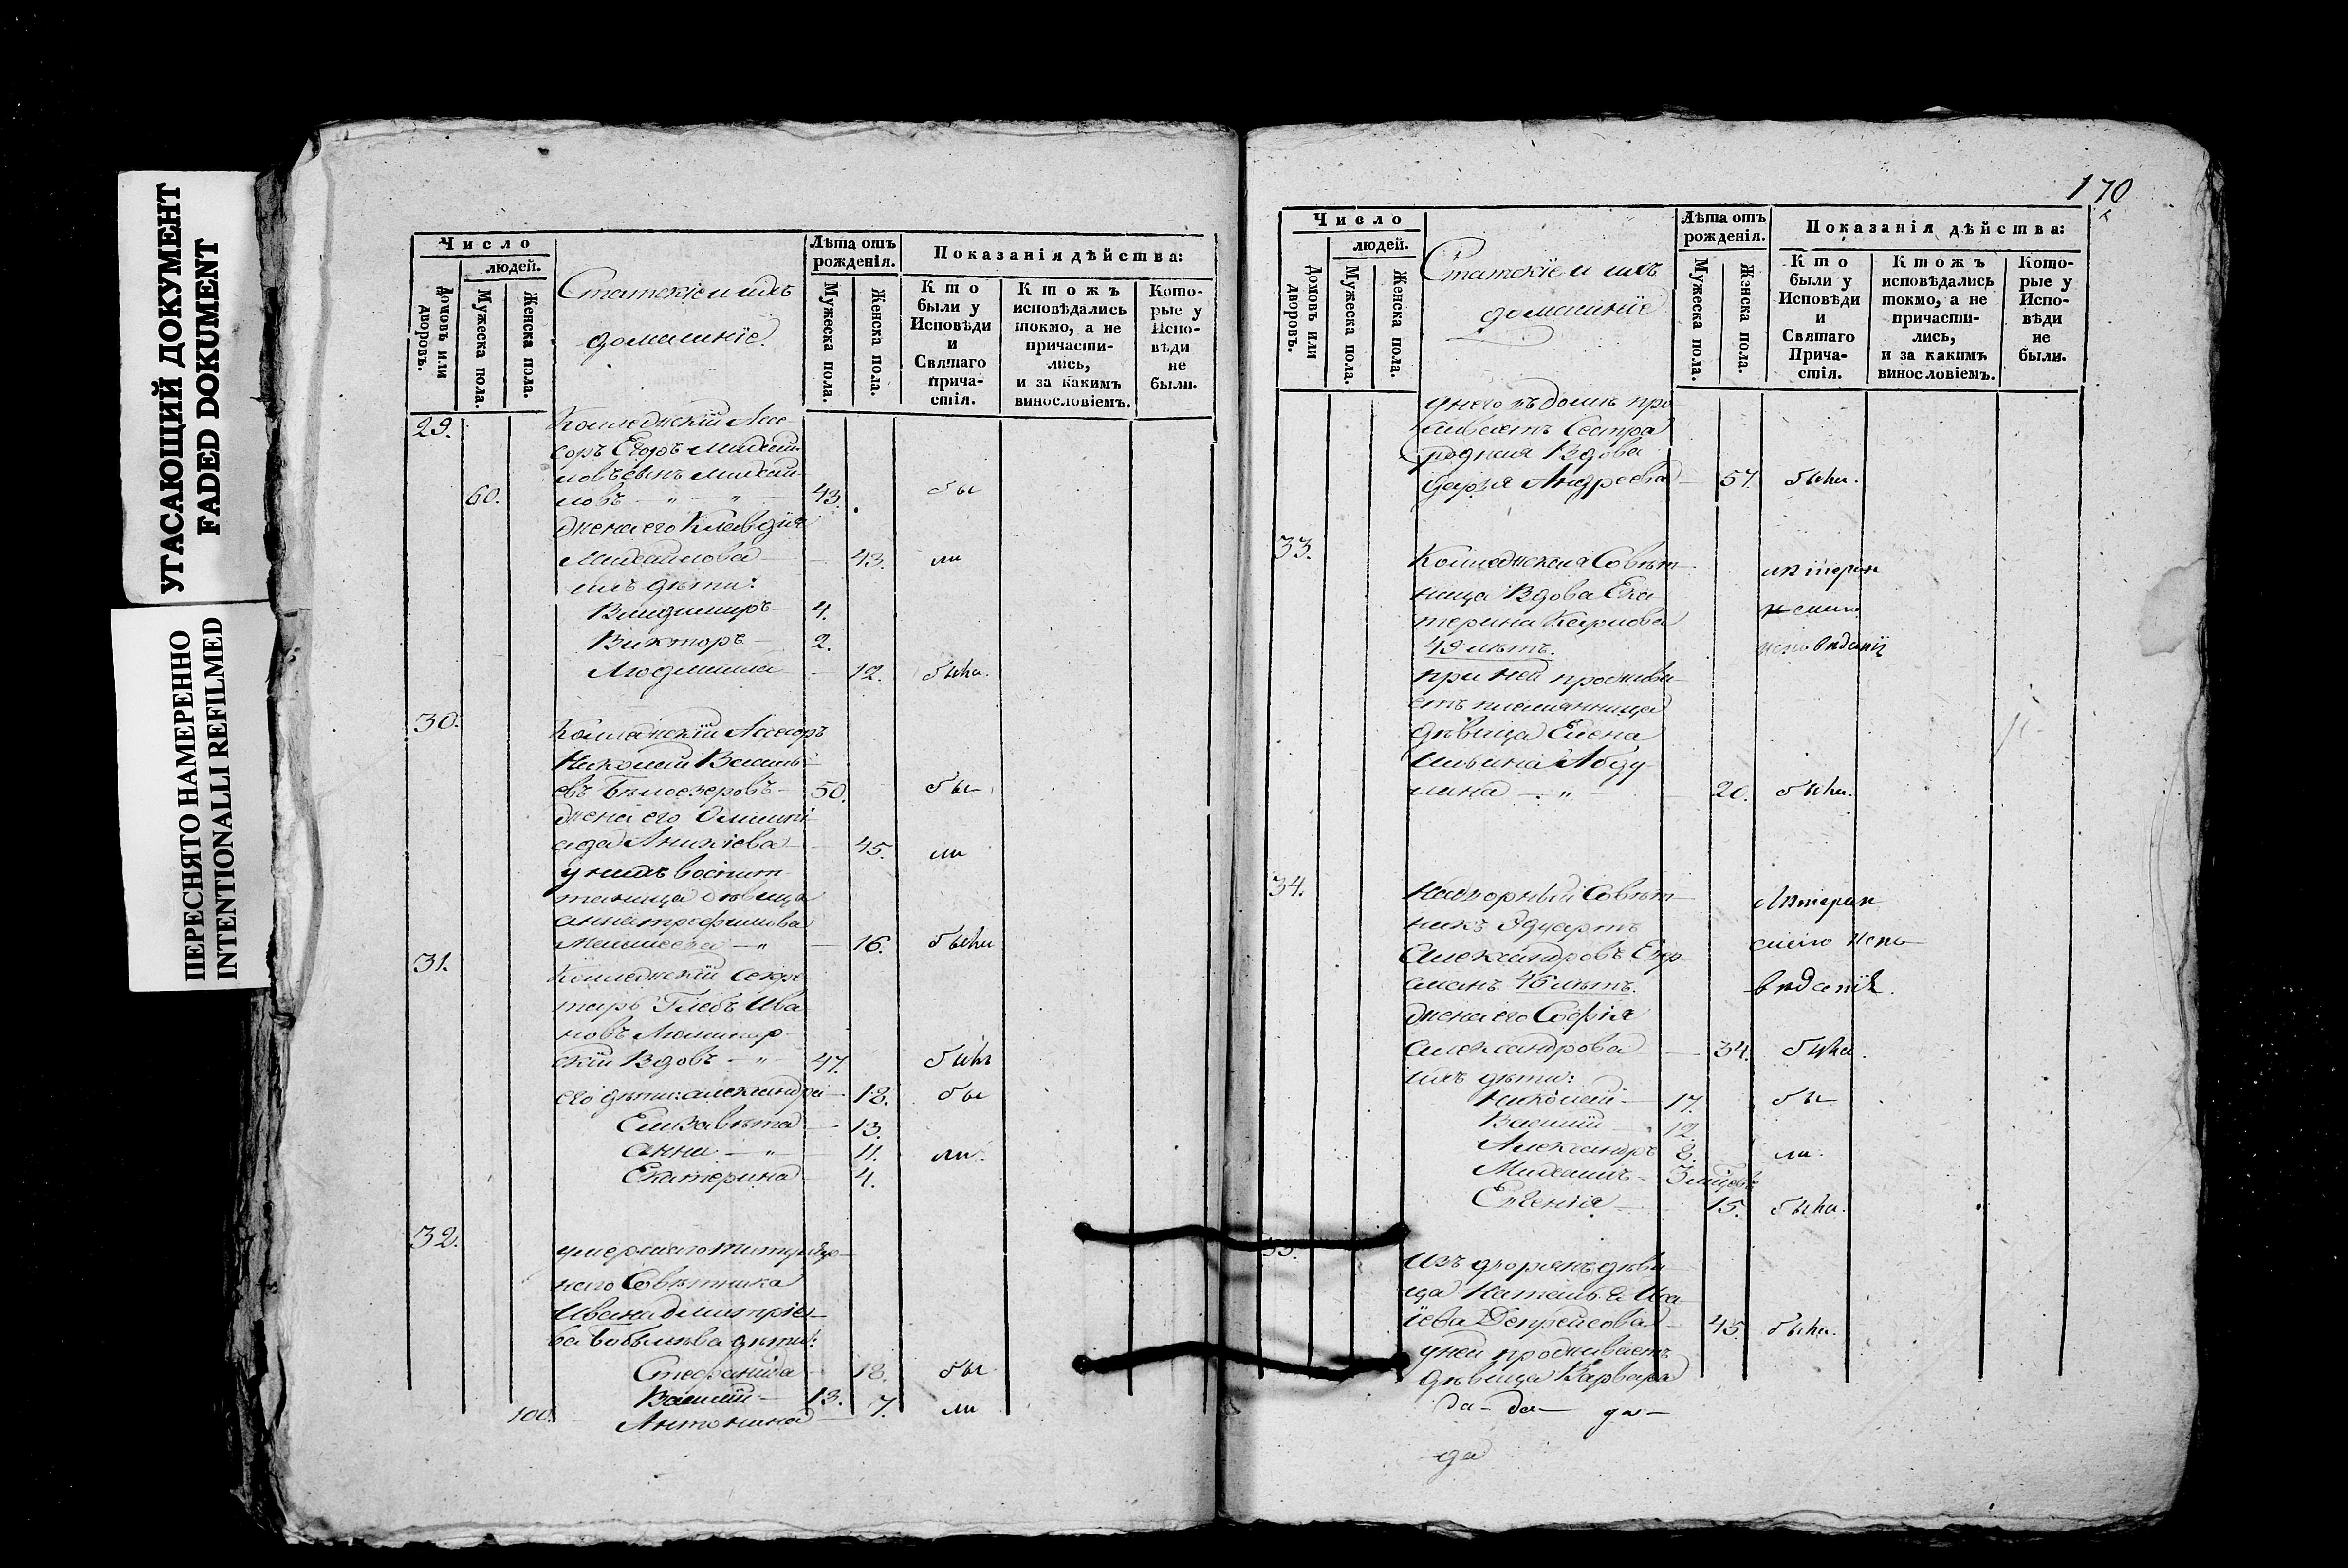 УГАСАЮЩИЙ ДОКУМЕНТ
FADED DOKUMENT
ПЕРЕСНЯТО НАМЕРЕННО
INTENTIONALLI REFILMED
Число
людей.
Домовъ или дворовъ.
Мужеска пола.
Женска пола.
Статскіе и ихъ
домашніе.
Лѣта отъ
рожденія.
Мужеска пола.
Женска пола.
Показанія дѣйства:
Кто
были у
Исповѣди
и
Святаго
Прича-
стія.
Ктожъ
исповѣдались
токмо, а не
причасти-
лись,
и за какимъ
винословіемъ.
Кото-
рые у
Испо-
вѣди
не
были.
29. Коллежскій Асе
соръ Егоръ Михай
ловъ сынъ Михай
60. ловъ — „ — „ — 43. бы
жена его Клавдія
Михайлова — 43. ли
ихъ дѣти:
Владимиръ — 4.
Викторъ — 2.
Людмила — 12. были.
30. Коллежскій Асесоръ
Николай Василь
евъ Бѣлозеровъ — 50. бы
жена его
45. ли
у нихъ воспит
танница дѣвица
Анна Трофимова
— „ — 16. были
31. Коллежскій Секре
тарь Глебъ Ива
новъ
скій Вдовъ — „ — 47. былъ
его дѣти: Александра — 18. бы
Елизавѣта — 13.
Анна — „ — 11. ли.
Екатерина 4.
32. умершаго Титуляр
наго Совѣтника
Ивана Дмитріе
ва дѣти:
Стефанида 18. бы
Василій — 13.
100. Антонина — 7. ли
170
Число
людей.
Домовъ или дворовъ.
Мужеска пола.
Женска пола.
Статскіе и ихъ
домашніе
Лѣта отъ
рожденія.
Мужеска пола.
Женска пола.
Показанія дѣйства:
Кто
были у
Исповѣди
и
Святаго
Прича-
стія.
Ктожъ
исповѣдались
токмо, а не
причасти-
лись,
и за какимъ
винословіемъ.
Кото-
рые у
Испо-
вѣди
не
были.
у него въ домѣ про
живаетъ Сестра
родная Вдова
Дарья Андреева — 57. была.
33. Коллежская Совѣт
ница Вдова Ека
терина Карлова
49 лѣтъ.
при ней прожива
етъ племянница
дѣвица Елена
Ильина Абду
лина — „ — 20. была.
34. Надворный Совѣт лютеран
никъ Эдуартъ
Александровъ скаго испо
46 лѣтъ. вѣданія.
жена его Софія
Александрова — 34. была.
ихъ дѣти:
Николай — 17. бы
Василій 12.
Александръ 8. ли.
Михаилъ — 3
Евгенія — 15. была.
35. Изъ дворянъ дѣви
ца Наталья
45. была.
у ней проживаетъ
дѣвица Варвара
да — да — да —
да